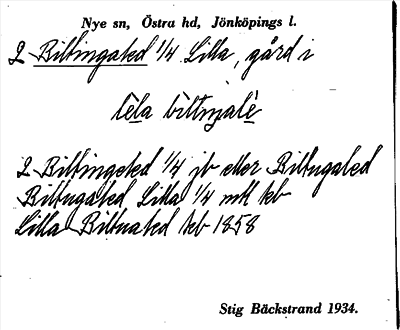 Nye sn, Östra hd, Jönköpings l.
2 Biltingaled 1/4 Lilla, gård i
lèla bìttnjalè
2 Biltingeled 1/4 jb eller Biltugaled
Biltugaled Lilla 1/4 mtl kb
Lilla Biltualed kb 1858
Stig Bäckstrand 1934.